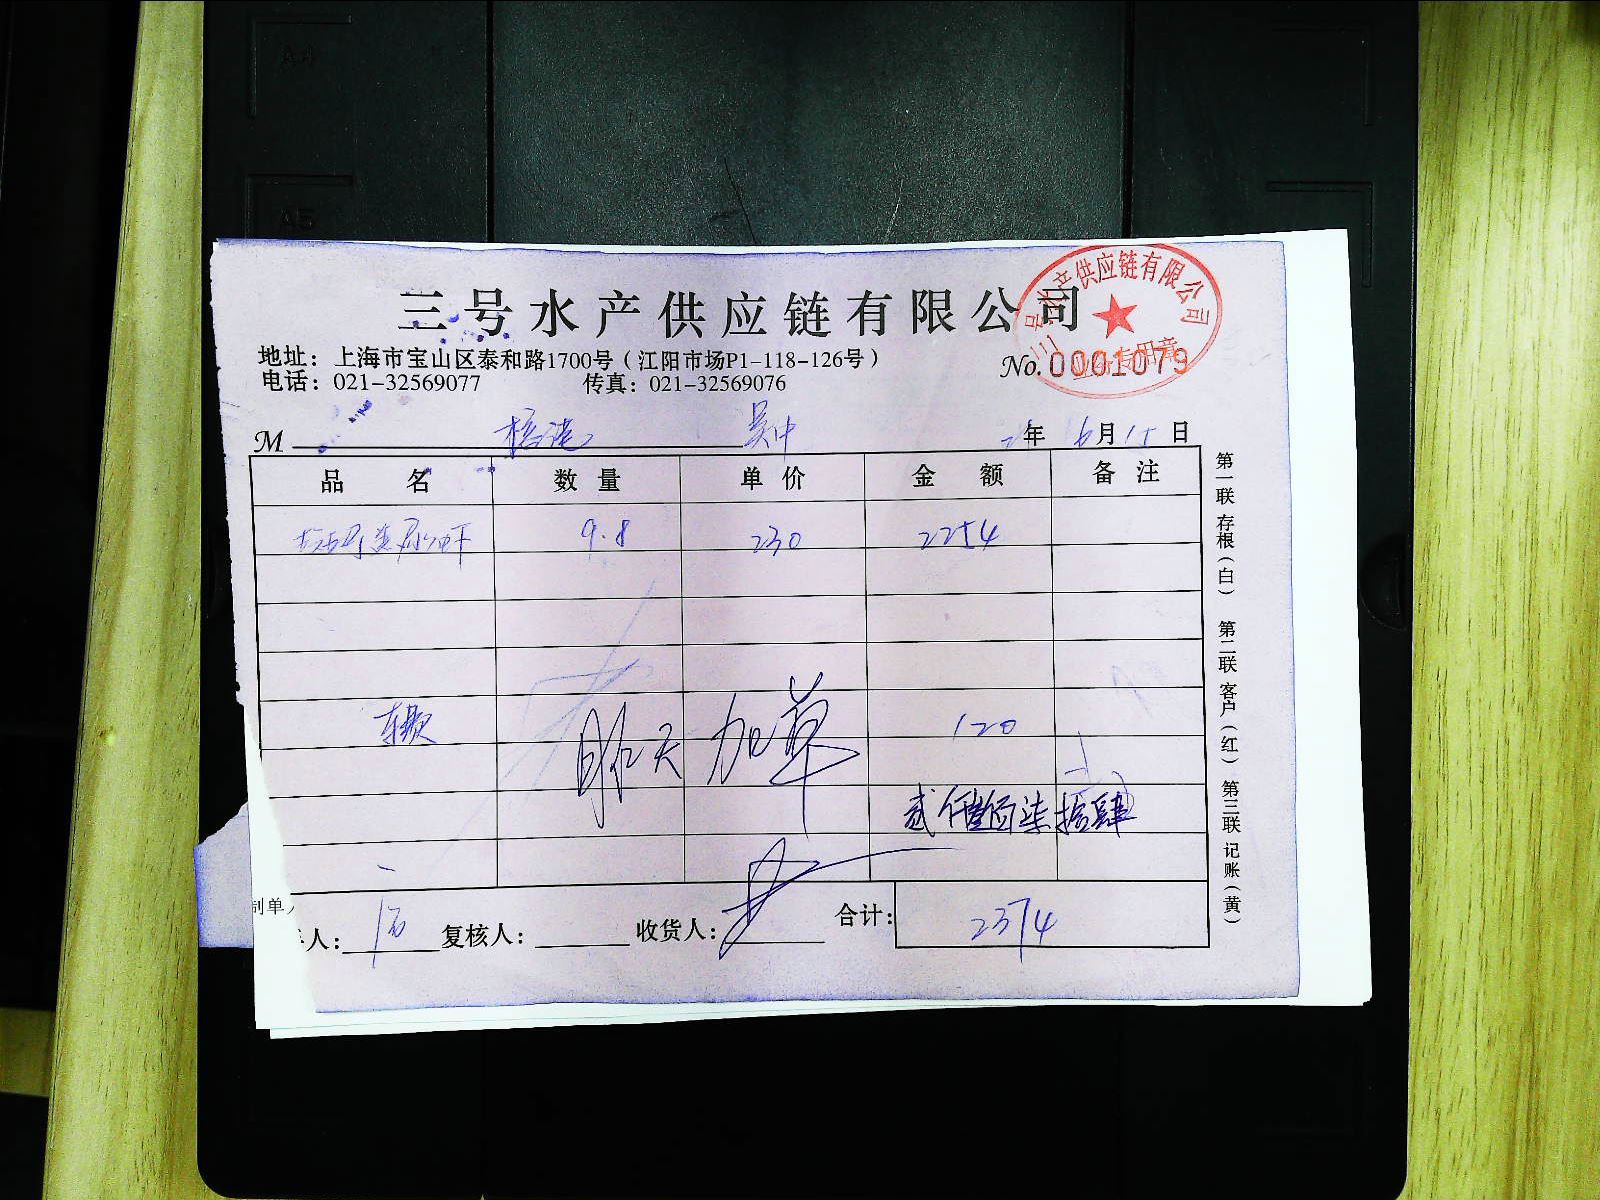 A4
A5
三号水产供应链有限公司
三号水产供应链有限公司
业务专用章
地址：上海市宝山区泰和路1700号（江阳市场P1-118-126号）
No.0001079
电话：021-32569077 传真：021-32569076
M 吴中 年 6月15日
品名 数量 单价 金额 备注
9.8 230 2254
车费 120
昨天加单
贰仟叁佰柒拾肆
制单人
人： 复核人： 收货人： 合计： 2374
第一联 存根（白） 第二联 客户（红） 第三联 记账（黄）